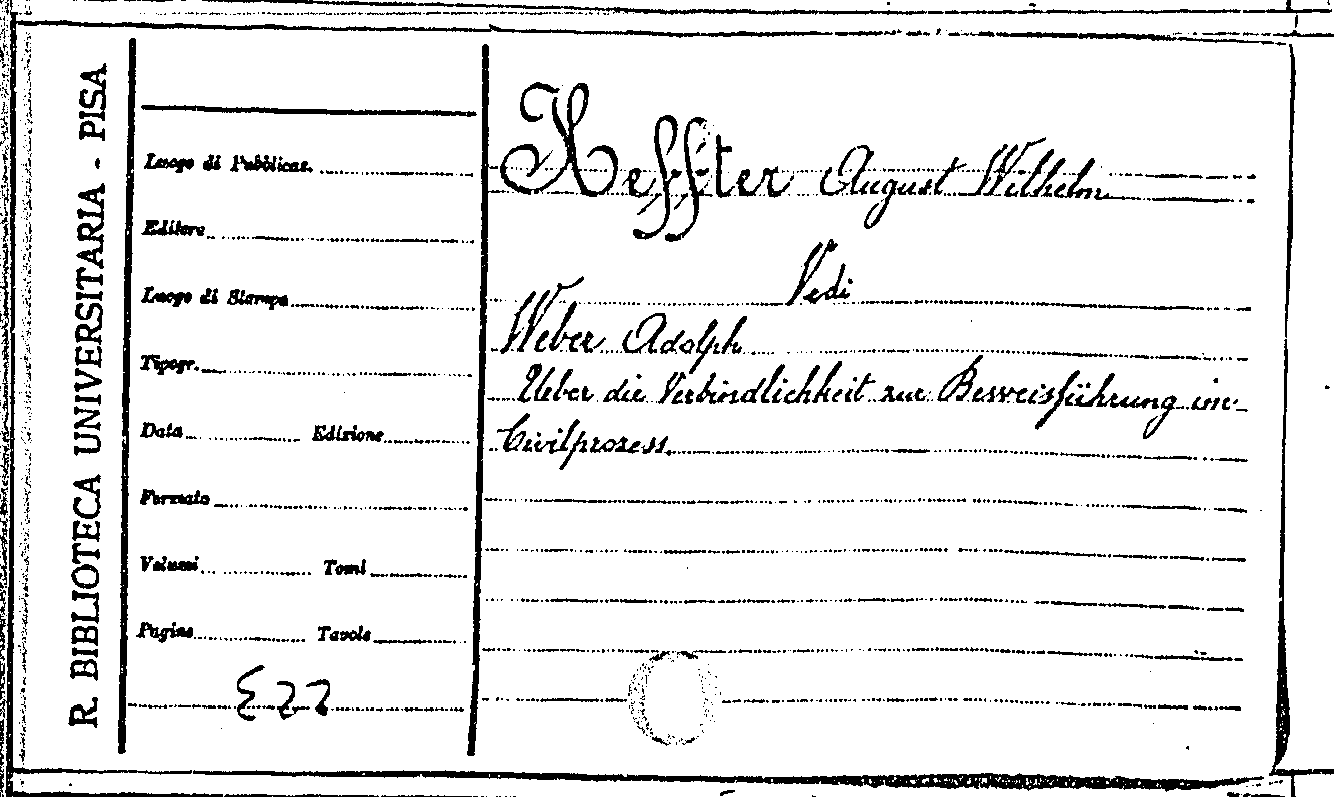 R. BIBLIOTECA UNIVERSITARIA - PISA
Luogo di Pubblicaz.
Editore
Luogo di Stampa
Tipogr.
Data Edizione
Formato
Volumi Tomi
Pagine Tavole
Heffter August Wilhelm
Vedi
Weber Adolph
Ueber die Verbindlichkeit zur Beweisführung im
Civilprozess